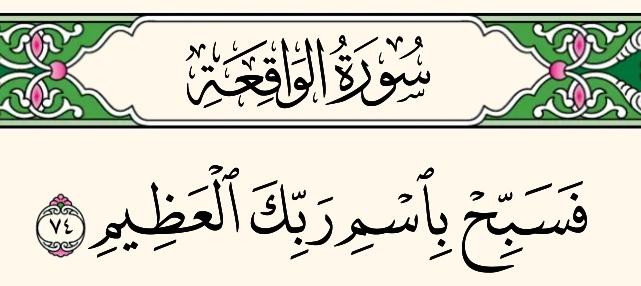 سُورَةُ الوَاقِعَةِ
فَسَبِّحْ بِٱسْمِ رَبِّكَ ٱلْعَظِيمِ ٧٤